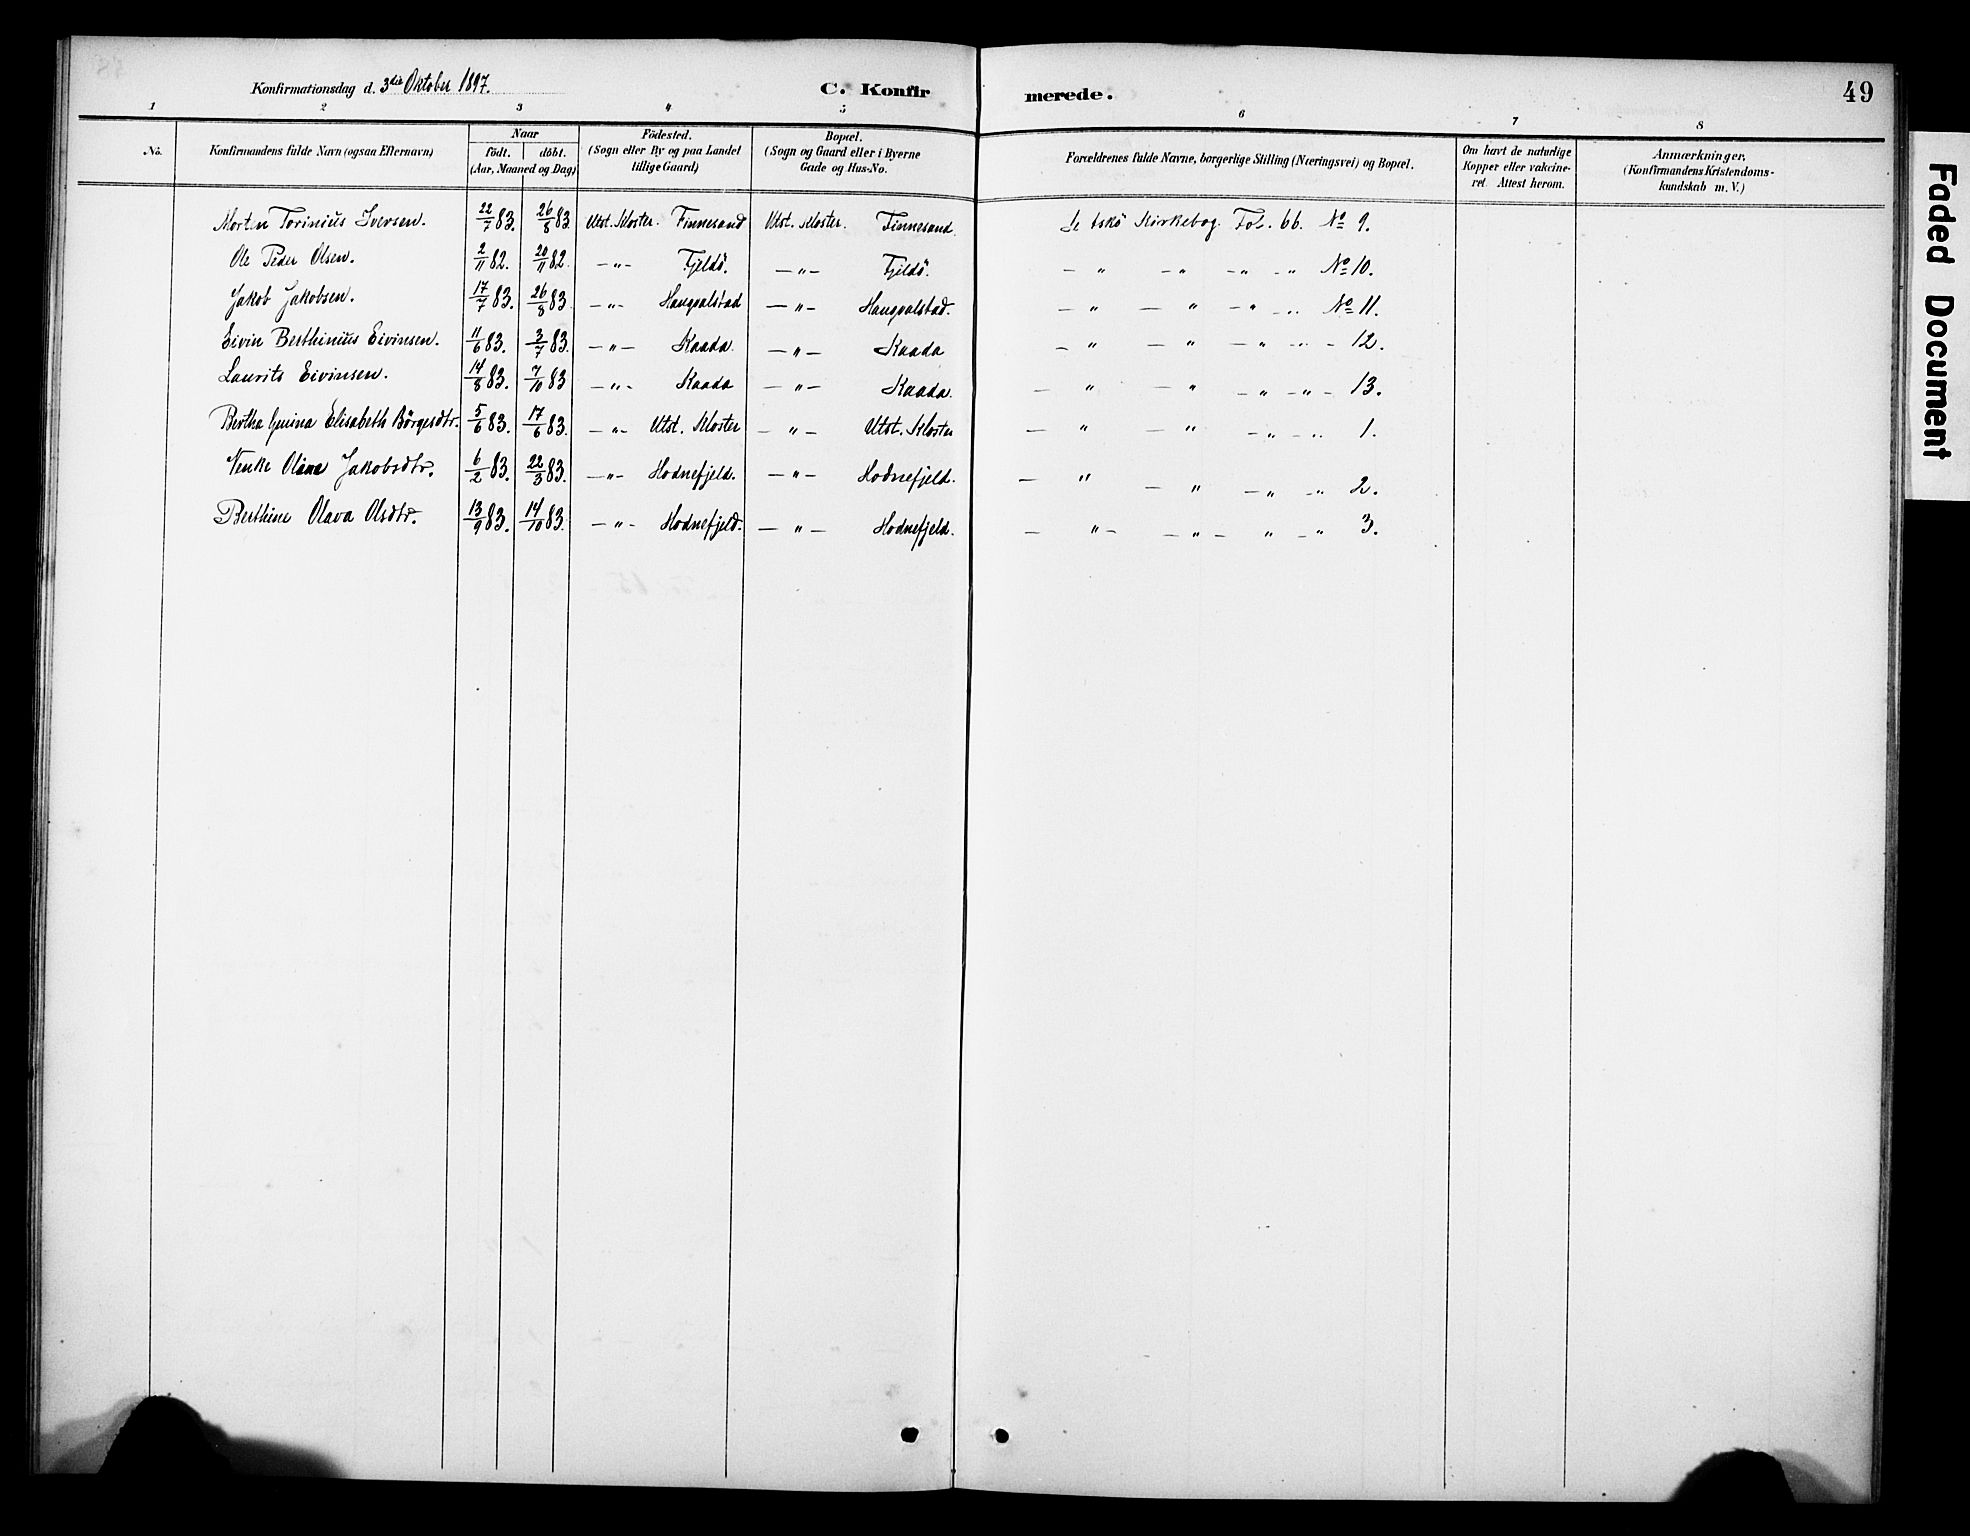 Konfirmationsdag d. 3die Oktober 1897. C. Konfirmerede. 49
1 2 3 4 5 6 7 8
No. Konfirmandens fulde Navn (ogsaa Efternavn) Naar födt. döbt. (Aar, Maaned og Dag) Födested. (Sogn eller By og paa Landet tillige Gaard) Bopæl. (Sogn og Gaard eller i Byerne Gade og Hus-No. Forældrenes fulde Navne, borgerlige Stilling (Næringsvei) og Bopæl. Om havt de naturlige Kopper eller vakcineret. Attest herom. Anmærkninger. (Konfirmandens Kristendomskundskab m. V.)
Morten Torinius Iversen. 22/7 83. 26/8 83. Utst. Kloster. Finnesand Utst. Kloster. Finnesand. Se Askö Kirkebog. Fol. 66. No 9.
Ole Peder Olsen. 2/11 82. 20/11 82. — " — Fjeldö. — " — Fjeldö. — " — " — " — " No 10.
Jakob Jakobsen. 17/7 83. 26/8 83. — " — Haugvalstad — " — Haugvalstad. — " — " — " — " No 11.
Eivin Berthinius Eivinsen. 11/6 83. 3/7 83. — " — Kaada. — " — Kaada — " — " — " — " — 12.
Laurits Eivinsen. 14/8 83. 7/10 83 — " — Kaada — " — Kaada. — " — " — " — " — 13.
Bertha Gurina Elisabeth Börgesdtr. 5/6 83. 17/6 83. — " — Utst. Kloster — " — Utst. Kloster — " — " — " — " 1.
Venke Olina Jakobsdtr. 6/2 83. 22/3 83. — " — Hodnefjeld. — " — Hodnefjeld. — " — " — " — " 2.
Berthine Olava Olsdtr. 13/9 83. 14/10 83. — " — Hodnefjeld. — " — Hodnefjeld. — " — — " — " — " 3.
Faded Document